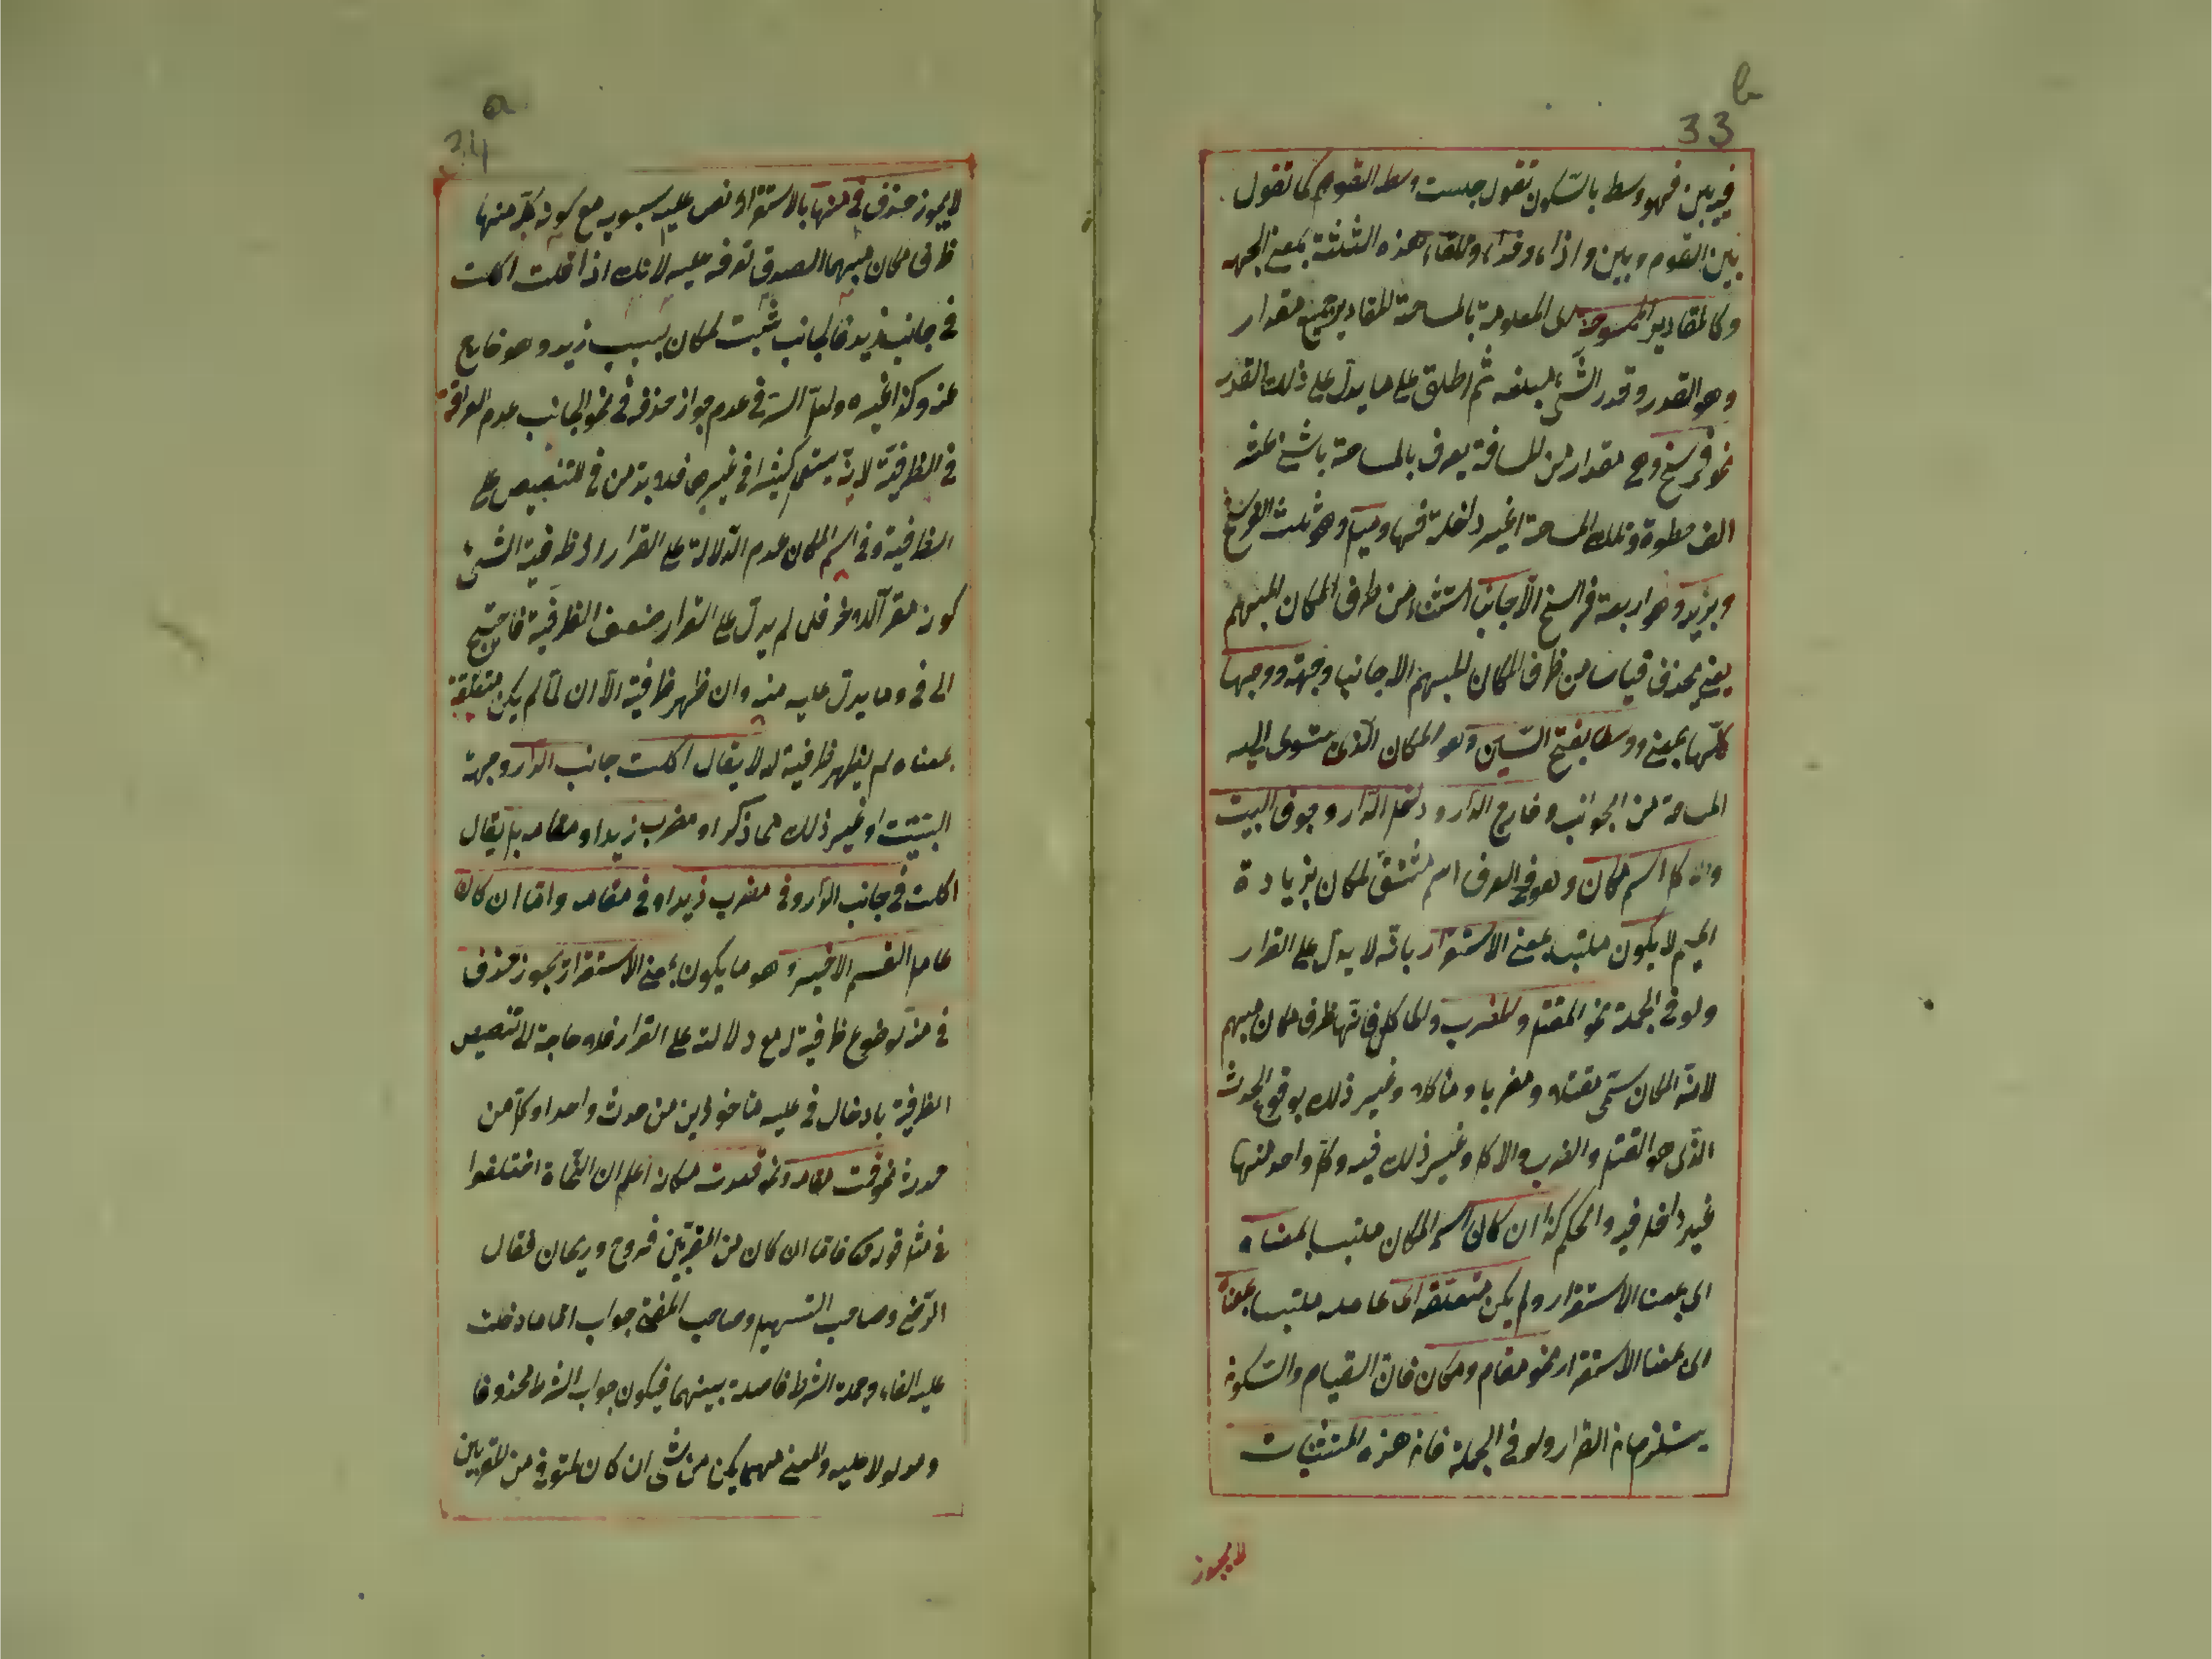 b
33
فيه بين فهو وسط بالسّكون تقول جلست وسط القوم كما تقول
بين القوم وبين واذاء وحذاء وتلقاء هذه الثلثة بمعنى الجهه
وكالمقادير الممسوحة اى المعلومة بالمساحة المقادير جمع مقدار
وهو القدر وقدر الشّئ مبلغه ثم اطلق على ما يدل على ذلك القدر
نحو فرسخ وهى مقدار من المسافة يعرف بالمساحة باثنى عشر
الف خطوة وتلك المساحة اغير داخلة فيها وميل وهو ثلث الفرسخ
وبريد وهو اربعة فراسخ الّا جانبا استثناء من ظرف المكان المبهم
يعنى يحذف قياسا من ظرف المكان المبهم الا جانبا وجهة ووجها
كلّها بمعنى ووسطا بفتح السّين وهو المكان الّذى ستوى اليه
المساحة من الجوانب وخارج الدار وداخل الدّار وجوف البيت
والّا كل اسم مكان وهو فى العرف اسم مشتقّ لمكان بزيادة
الميم لا يكون ملتبسا بمعنى الاستقرار بانّه لا يدل على القرار
ولو فى الجملة نحو المقتل والمضرب والماكل فانّها ظرف مكان مبهم
لانّ المكان سمّى مقتلا ومضربا وماكلا وغير ذلك بوقوع الحدث
الّذى هو القتل والضرب والاكل وغير ذلك فيه وكل واحد منها
غير داخل فيه والحكم كذا ان كان اسم المكان ملتبسا بمعناه
اى بمعنا الاستقرار ولم يكن متعلقه اى عامله ملتبسا بمعناه
اى بمعنا الاستقرار نحو مقام ومكان فانّ القيام والسّكون
يستلزمان القرار ولو فى الجملة فانّ هذه المستثنيات
لا يجوز
a
34
لا يجوز حذف فى منها بالاستقراء ونص عليه سيبويه مع كون كلّ منها
ظرف مكان مبهما لصدق تعرفه عليه لانك اذا قلت اكلت
فى جانب زيد فالجانب ثبت لمكان بسبب زيد وهو خارج
عنه وكذا غيره ولعلّ السّر فى عدم جواز حذف فى نحو الجانب عدم العراقة
فى الظرفيّة لانّه يستعمل كثيرا فى غيرها فلا بدّ من فى للتنصيص على
الظرفية وفى اسم المكان عدم الدّلالة على القرار اذ ظرفية الشئ
كونه مقرّا لاخر فلمّا لم يدلّ على القرار ضعف الظرفية فاحتيج
الى فى وما يدلّ عليه منه وان ظهر ظرفية الّا ان لمّا لم يكن متعلقه
بمعناه لم يظهر ظرفية له لا يقال اكلت جانب الدّار وجهة
البيت او غير ذلك مما ذكر او مضرب زيد او مقامه بل يقال
اكلت فى جانب الدّار وفى مضرب زيد او فى مقامه وامّا ان كان
عامل القسم الاخير وهو ما يكون بمعنى الاستقرار يجوز حذف
فى منه لوضوع ظرفية له مع دلالته على القرار فلا حاجة للتنصيص
الظرفية بادخال فى عليه ماخوذين من حدث واحد او كل من
حدث نحو قمت مقامه ونحو قعدت مكانه اعلم ان النّحاة اختلفوا
فى مثل قوله تعالى فامّا ان كان من المقرّبين فروح وريحان فقال
الرّضى وصاحب التسهيل وصاحب المغنى جواب امّا ما دخلت
عليه الفاء وجملة الشرط فاصلة بينهما فيكون جواب الشرط محذوفا
ومدلولا عليه والمعنى مهما يكن من شئ ان كان المتوفى من المقربين